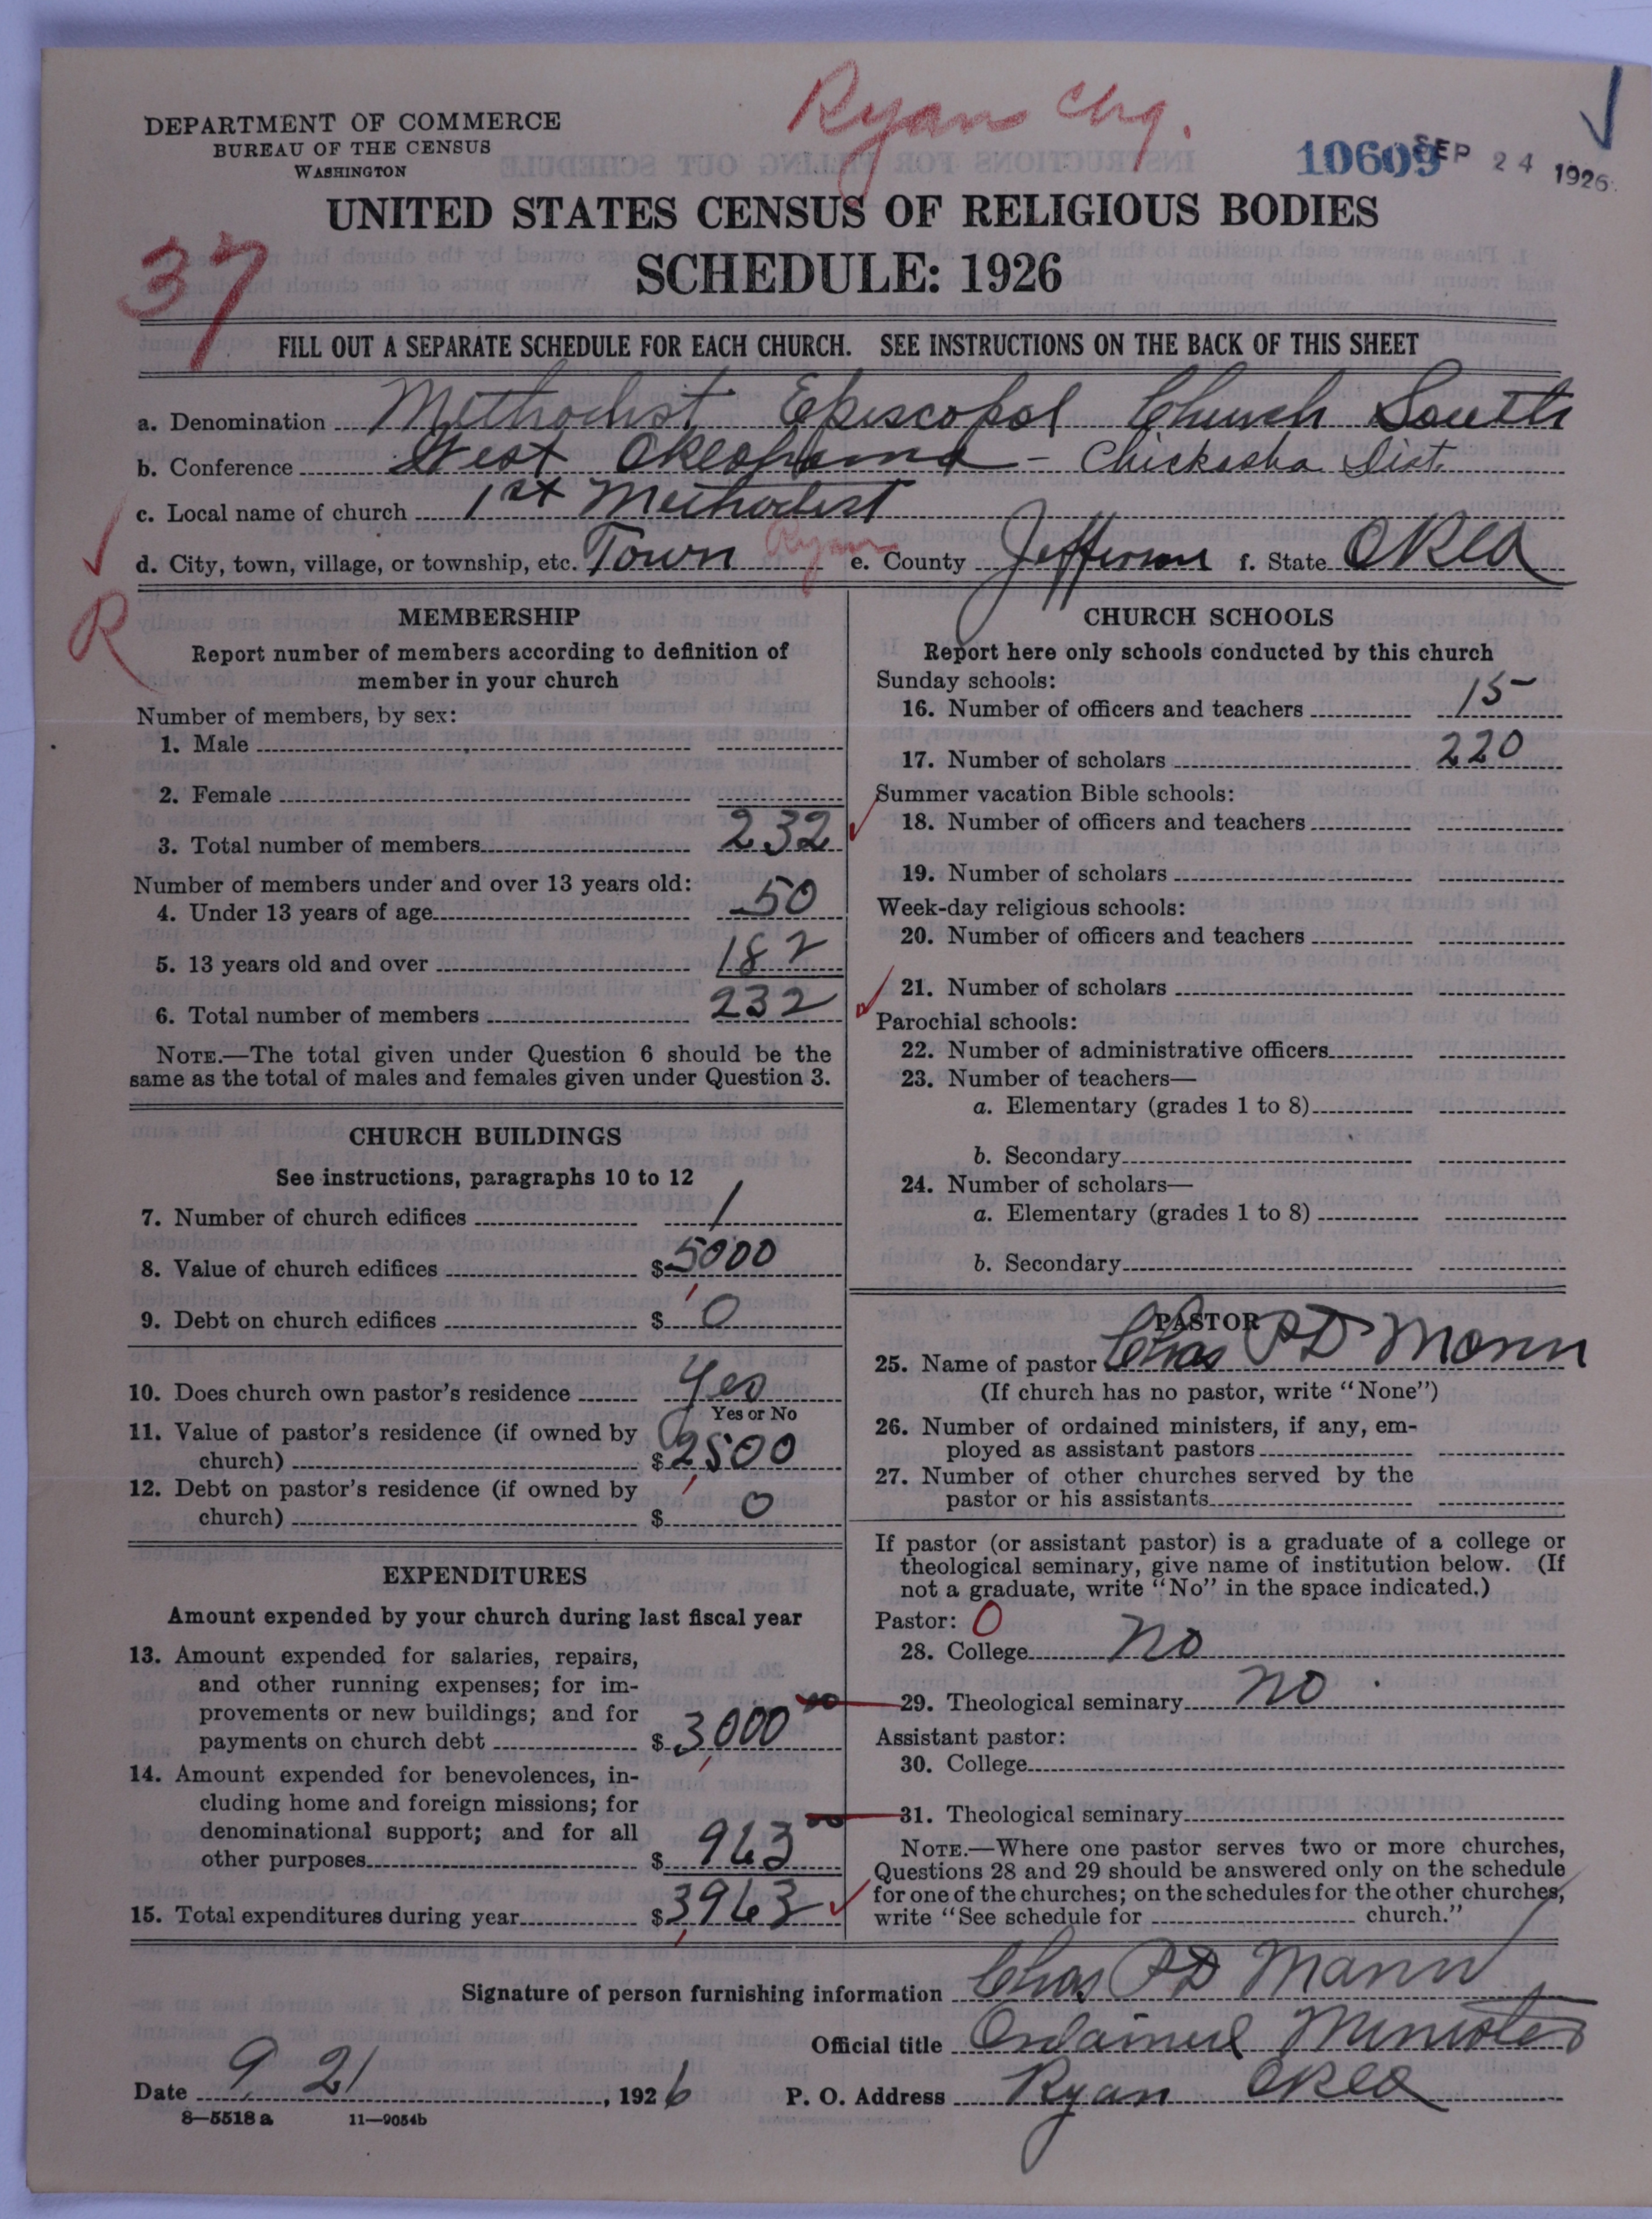 Ryan Chg.
DEPARTMENT OF COMMERCE
BUREAU OF THE CENSUS
WASHINGTON
10609
SEP 24 1926
UNITED STATES CENSUS OF RELIGIOUS BODIES
SCHEDULE: 1926
37
FILL OUT A SEPARATE SCHEDULE FOR EACH CHURCH. SEE INSTRUCTIONS ON THE BACK OF THIS SHEET
a. Denomination Methodist Episcopal Church South
b. Conference West Okeahoma - Chickasha Dist.
c. Local name of church 1st Methodist
d. City, town, village, or township, etc. Town Ryan e. County Jefferson f. State Okla
R
MEMBERSHIP
Report number of members according to definition of
member in your church
Number of members, by sex:
1. Male
2. Female
3. Total number of members 232
Number of members under and over 13 years old:
4. Under 13 years of age 50
5. 13 years old and over 182
6. Total number of members 232
NOTE.—The total given under Question 6 should be the
same as the total of males and females given under Question 3.
CHURCH BUILDINGS
See instructions, paragraphs 10 to 12
7. Number of church edifices 1
8. Value of church edifices $5000
9. Debt on church edifices $0
10. Does church own pastor's residence Yes
Yes or No
11. Value of pastor's residence (if owned by
church) $2500
12. Debt on pastor's residence (if owned by
church) $0
EXPENDITURES
Amount expended by your church during last fiscal year
13. Amount expended for salaries, repairs,
and other running expenses; for im-
provements or new buildings; and for
payments on church debt $3,000 00
14. Amount expended for benevolences, in-
cluding home and foreign missions; for
denominational support; and for all
other purposes $963 00
15. Total expenditures during year $3963
CHURCH SCHOOLS
Report here only schools conducted by this church
Sunday schools:
16. Number of officers and teachers 15
17. Number of scholars 220
Summer vacation Bible schools:
18. Number of officers and teachers
19. Number of scholars
Week-day religious schools:
20. Number of officers and teachers
21. Number of scholars
Parochial schools:
22. Number of administrative officers
23. Number of teachers—
a. Elementary (grades 1 to 8)
b. Secondary
24. Number of scholars—
a. Elementary (grades 1 to 8)
b. Secondary
PASTOR
25. Name of pastor Chas P D Mann
(If church has no pastor, write "None")
26. Number of ordained ministers, if any, em-
ployed as assistant pastors
27. Number of other churches served by the
pastor or his assistants
If pastor (or assistant pastor) is a graduate of a college or
theological seminary, give name of institution below. (If
not a graduate, write "No" in the space indicated.)
Pastor: 0
28. College no
29. Theological seminary no
Assistant pastor:
30. College
31. Theological seminary
NOTE.—Where one pastor serves two or more churches,
Questions 28 and 29 should be answered only on the schedule
for one of the churches; on the schedules for the other churches,
write "See schedule for church."
Signature of person furnishing information Chas P D Mann
Official title Ordained Minister
Date 9 21, 1926 P. O. Address Ryan Okla
8—5518 a 11—9054b